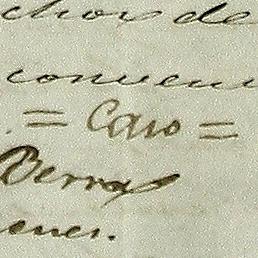 chos de
conveni
= Caso =
Berra
enes.